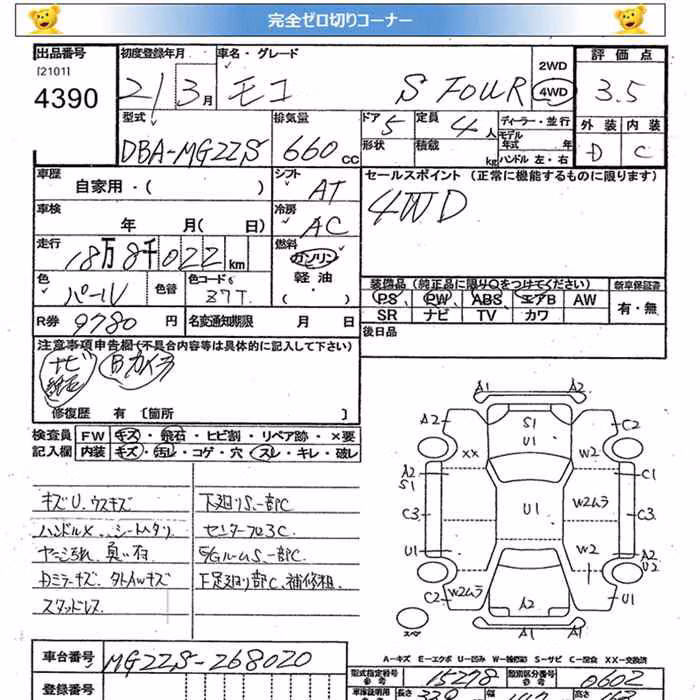 完全ゼロ切りコーナー
出品番号
[2101]
4390
初度登録年月
21 3月
車名・グレード
モコ S FOUR
2WD
4WD
評価点
3.5
外装 内装
D C
型式
DBA-MG22S
排気量
660 cc
ドア
5
定員
4人
形状
積載
kg
ディーラー・並行
モデル年式 年
ハンドル 左・右
車歴
自家用・( )
シフト
AT
セールスポイント(正常に機能するものに限ります)
4WD
車検
年 月( 日)
冷房
AC
走行
18万8千022km
燃料
ガソリン
軽油
・( )
色
パール
色替
色コード
Z7T
装備品(純正品に限り○をつけてください)
PS PW ABS エアB AW
SR ナビ TV カワ
新車保証書
有・無
R券 9780円
名変通知期限 月 日
後日品
注意事項申告欄(不具合内容等は具体的に記入して下さい)
ナビ
Bカメラ
修復歴 有[箇所 ]
検査員
記入欄
FW キズ・飛石・ヒビ割・リペア跡・×要
内装 キズ・汚レ・コゲ・穴・スレ・キレ・破レ
キズU、ウスキズ
ハンドルX、シートヘタリ
スタッドレス
下廻りS、一部C
センターフロアC
E/GルームS、一部C
A1 A2
A2 S1 U1 C2
XX W2
A2 S1 C1
C3 U1 W2ムラ C3
U1 W2 A2 U2
C2 W2ムラ A2 U1
A1 A2
スペア
A-キズ E-エクボ U-凹み W-補修跡 S-サビ C-腐食 XX-交換済
車台番号 MG22S-268020
登録番号
型式指定番号 参考 15278
類別区分番号 参考 0602